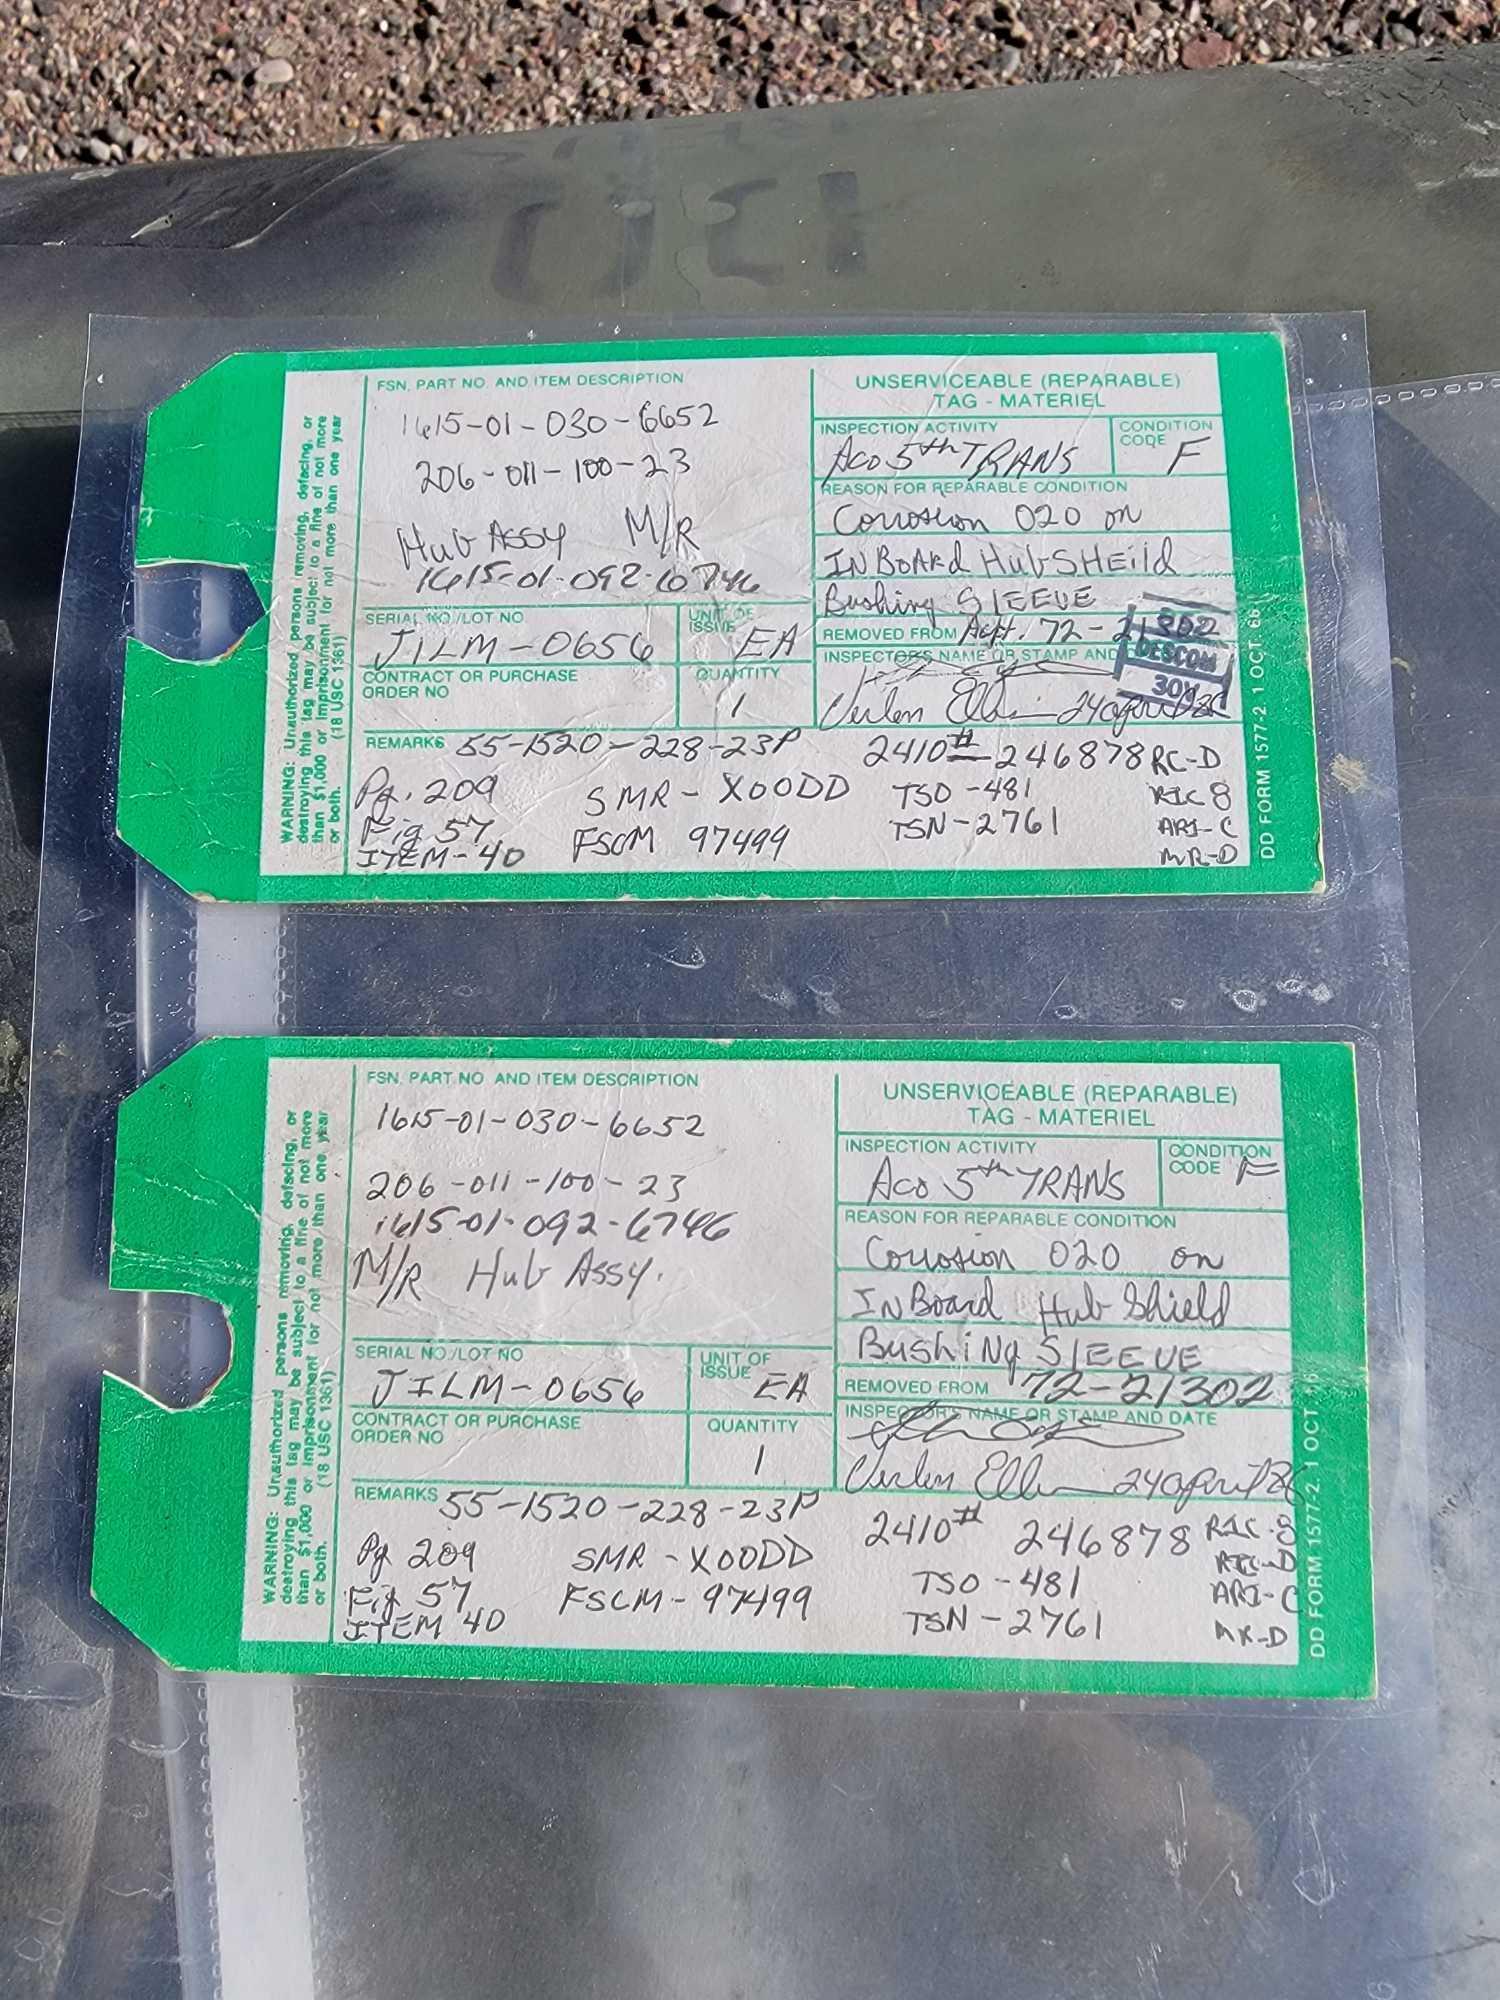 WARNING: Unauthorized persons removing, defacing, or
destroying this tag may be subject to a fine of not more
than $1,000 or imprisonment for not more than one year
or both. (18 USC 1361)
FSN, PART NO. AND ITEM DESCRIPTION
1615-01-030-6652
206-011-100-23
Hub Assy M/R
1615-01-092-6746
SERIAL NO./LOT NO
JILM-0656
UNIT OF ISSUE
EA
CONTRACT OR PURCHASE
ORDER NO
QUANTITY
1
UNSERVICEABLE (REPARABLE)
TAG - MATERIEL
INSPECTION ACTIVITY
Aco 5th TRANS
CONDITION
CODE F
REASON FOR REPARABLE CONDITION
Corrosion 020 on
INBOARd HubSHEild
Bushing SlEEVE
REMOVED FROM Acft. 72-21302
INSPECTOR'S NAME OR STAMP AND
DESCOM
30Y
24 april
REMARKS 55-1520-228-23P
Pg. 209
Fig 57
ITEM-40
SMR-XOODD
FSCM 97499
2410# 246878
TSO-481
TSN-2761
RC-D
RIC 8
ARI-C
MR-D
DD FORM 1577-2. 1 OCT. 66
WARNING: Unauthorized persons removing, defacing, or
destroying this tag may be subject to a fine of not more
than $1,000 or imprisonment for not more than one year
or both. (18 USC 1361)
FSN, PART NO AND ITEM DESCRIPTION
1615-01-030-6652
206-011-100-23
1615-01-092-6746
M/R Hub Assy.
SERIAL NO./LOT NO
JILM-0656
UNIT OF
ISSUE EA
CONTRACT OR PURCHASE
ORDER NO
QUANTITY
1
UNSERVICEABLE (REPARABLE)
TAG - MATERIEL
INSPECTION ACTIVITY
Aco 5th TRANS
CONDITION
CODE F
REASON FOR REPARABLE CONDITION
Corrosion 020 on
InBoard Hub Shield
Bushing SlEEVE
REMOVED FROM 72-21302
INSPECTOR'S NAME OR STAMP AND DATE
24 april
REMARKS 55-1520-228-23P
Pg 209
Fig 57
ITEM 40
SMR-XOODD
FSCM-97499
2410# 246878
TSO-481
TSN-2761
RIC-8
ARI-C
MR-D
DD FORM 1577-2. 1 OCT.